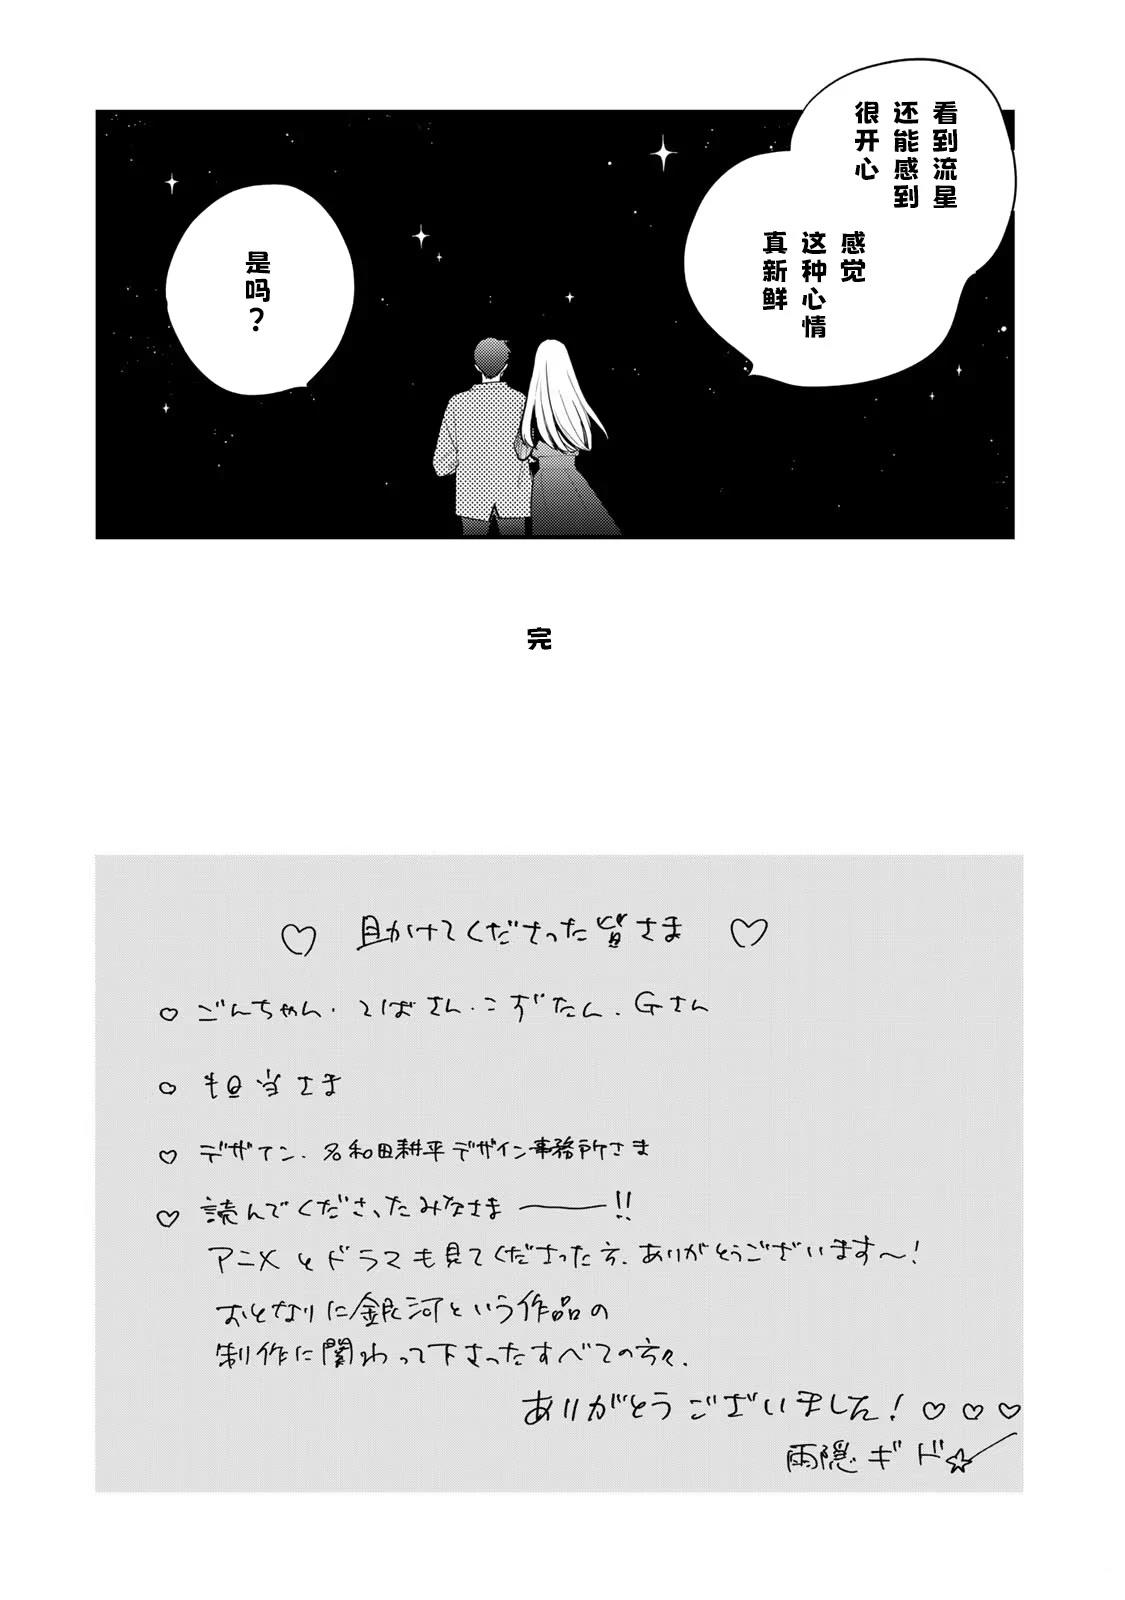 看到流星
还能感到
很开心
感觉
这种心情
真新鲜
是吗?
完
♡ 助かけてくださった皆さま ♡
♡ ごんちゃん・てばさん・こずたん、Gさん
♡ 担当さま
♡ デザイン、名和田耕平デザイン事務所さま
♡ 読んでくださったみなさま――!!
アニメとドラマも見てくださった方、ありがとうございます〜!
おとなりに銀河という作品の
制作に関わって下さったすべての方々、
ありがとうございました!♡♡♡
雨隠ギド☆